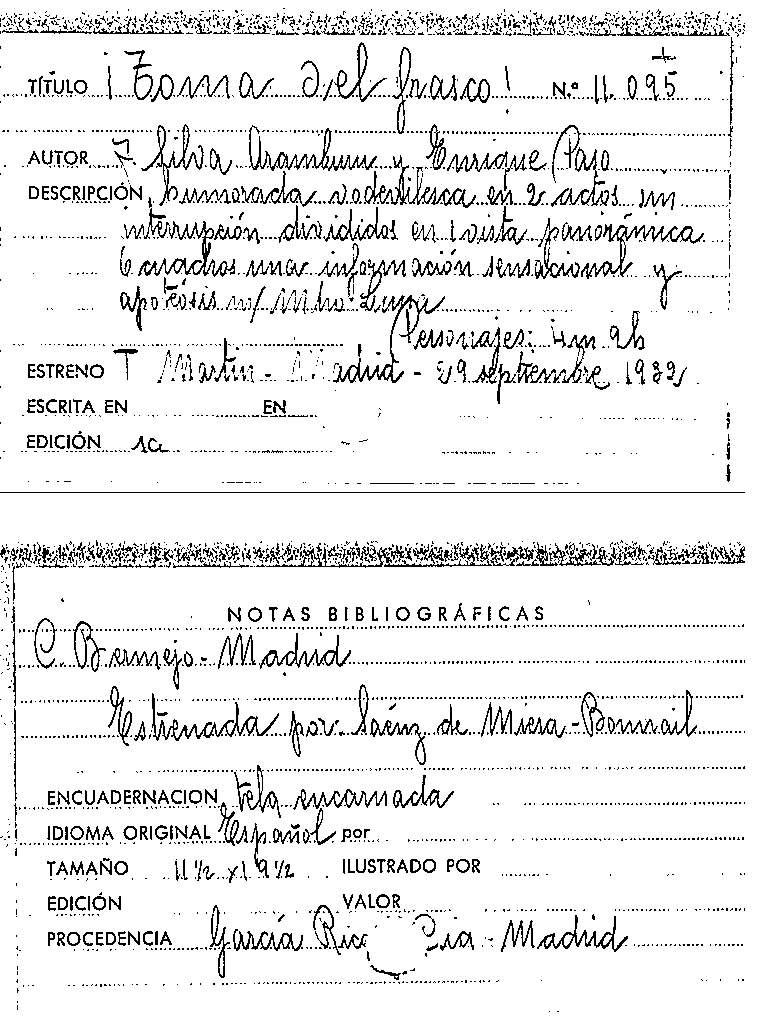 TÍTULO ¡Toma del frasco! N.º 11.095
AUTOR J. Silva Aramburu y Enrique Paso
DESCRIPCIÓN, humorada vodevilesca en 2 actos sin
interrupción divididos en 1 vista panorámica
6 cuadros una información sensacional y
apoteósis m/ Mtro. Luna
Personajes: 4m 9h
ESTRENO T Martin - Madrid - 29 septiembre 1932
ESCRITA EN EN
EDICIÓN 1a
NOTAS BIBLIOGRÁFICAS
C. Bermejo - Madrid
Estrenada por: Saénz de Miera - Bonmail
ENCUADERNACION, tela encarnada
IDIOMA ORIGINAL Español por
TAMAÑO 11 1/2 x 19 1/2 ILUSTRADO POR
EDICIÓN VALOR
PROCEDENCIA García Rico Cia - Madrid